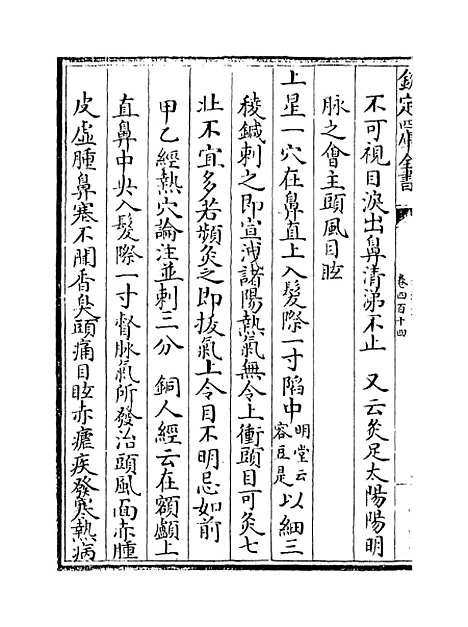 欽定四庫全書
卷四百十四
不可視目淚出鼻清涕不止　又云灸足太陽陽明
脉之會主頭風目眩
上星一穴在鼻直上入髮際一寸陷中明堂云容豆是以細三
稜鍼刺之即宣洩諸陽熱氣無令上衝頭目可灸七
壯不宜多若頻灸之即拔氣上令目不明忌如前
甲乙經熱穴論注並刺三分　銅人經云在額顱上
直鼻中央入髮際一寸督脉氣所發治頭風面赤腫
皮虛腫鼻塞不聞香臭頭痛目眩赤瘧疾發寒熱病